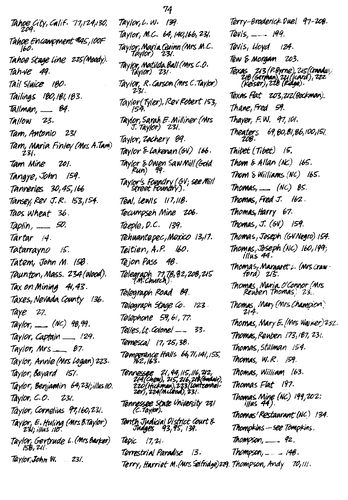 74
Tahoe City, Calif. 77,124,130,
209.
Tahoe Encampment #45, 100f
160.
Tahoe Stage Line 225 (Moody).
Tah-we 49.
Tail Sluice 180.
Tailings 180,181,183.
Tallman, ___ 84.
Tallow 23.
Tam, Antonio 231
Tam, Maria Finley (Mrs. A. Tam)
231.
Tam Mine 201.
Tangye, John 159.
Tanneries 30,45,166
Tansey, Rev J.R. 153,154.
Taos Wheat 36.
Taplin, ___ 50.
Tartar 14.
Tatarrayno 15.
Tatem, John M. 158.
Taunton, Mass. 234 (Wood).
Tax on Mining 41,43.
Taxes, Nevada County 136.
Taye 27.
Taylor, ___ (NC) 98,99.
Taylor, Captain ___ 129.
Taylor, Mrs ___ 87.
Taylor, Annie (Mrs. Logan) 223.
Taylor, Bayard 151.
Taylor, Benjamin 69,231, illus 110.
Taylor, C.D. 231.
Taylor, Cornelius 97,160,231.
Taylor, E. Huling (Mrs B. Taylor)
231, illus 110.
Taylor, Gertrude L. (Mrs Barker)
158, 211.
Taylor, John W. 231.
Taylor, L.W. 159.
Taylor, M.C. 64,140,166,231.
Taylor, Maria Quinn (Mrs. M.C.
Taylor) 231.
Taylor, Matilda Ball (Mrs. C.D.
Taylor) 231.
Taylor, R. Carson (Mrs C. Taylor)
231.
Taylor (Tyler), Rev Robert 153,
154.
Taylor, Sarah E. Milliner (Mrs
J. Taylor) 231.
Taylor, Zachery 89.
Taylor & Lakenan (GV) 166.
Taylor & Owen Saw Mill (Gold
Run) 99.
Taylor's Foundry (GV; see Mill
Street Foundry).
Teal, Lewis 117,118.
Tecumpseh Mine 206.
Teeple, D.C. 139.
Tehuantepec, Mexico 13,17.
Teition, A.P. 160.
Tejon Pass 48.
Telegraph 77,78,82,208,215
(M. Church).
Telegraph Road 84.
Telegraph Stage Co. 123.
Telephone 59,61,77.
Telles, Lt. Colonel ___ 33.
Temescal 17,25,38.
Temperance Halls 64,71,141,155,
162,163.
Tennessee 21,44,115,116,212,
Tennessee State University 231
(C. Taylor).
Tenth Judicial District Court &
Judges 93,95,139.
Tepic 17,21.
Terrestrial Paradise 13.
Terry, Harriet M. (Mrs Selfridge) 229.
Terry-Broderick Duel 97-208.
Tevis, ___ 199.
Tevis, Lloyd 124.
Tew & Morgan 203.
Texas Flat 203,212 (Beckman).
Thane, Fred 59.
Thayer, F.W. 97,101.
Theaters 69,80,81,86,100,151,
208.
Thibet (Tibet) 15.
Thom & Allan (NC) 165.
Thom & Williams (NC) 165.
Thomas, ___ (NC) 85.
Thomas, Fred J. 162.
Thomas, Harry 67.
Thomas, J. (GV) 159.
Thomas, Joseph (GV Negro) 154.
Thomas, Joseph (NC) 160,199;
illus 44.
Thomas, Margaret L. (Mrs Craw-
ford) 213.
Thomas, Maria O'Connor (Mrs
Reuben Thomas) 23.
Thomas, Mary (Mrs Champion)
214.
Thomas, Mary E. (Mrs Warner) 232.
Thomas, Reuben 173,187,231.
Thomas, Stillman 154.
Thomas, W.R. 159.
Thomas, William 163.
Thomas Flat 197.
Thomas Mine (NC) 199,202;
illus 44).
Thomas' Restaurant (NC) 134.
Thompkins – see Tompkins.
Thompson, ___ 92.
Thompson, ___ 148.
Thompson, Andy 70,111.